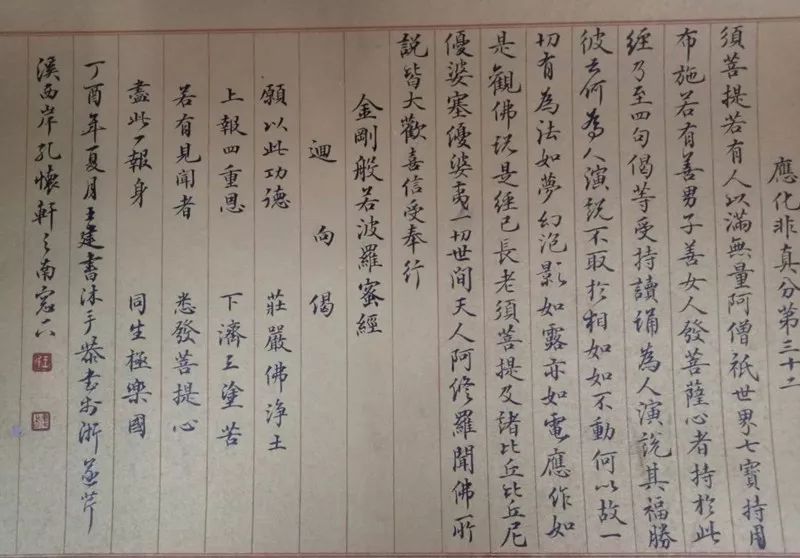 應化非真分第三十二
須菩提若有人以滿無量阿僧祇世界七寶持用
布施若有善男子善女人發菩薩心者持於此
經乃至四句偈等受持讀誦為人演說其福勝
彼云何為人演說不取於相如如不動何以故一
切有為法如夢幻泡影如露亦如電應作如
是觀佛説是經已長老須菩提及諸比丘比丘尼
優婆塞優婆夷一切世间天人阿修羅聞佛所
説皆大歡喜信受奉行
金剛般若波羅蜜經
迴向偈
願以此功德 莊嚴佛淨土
上報四重恩 下濟三塗苦
若有見聞者 悉發菩提心
盡此一報身 同生極樂國
丁酉年夏月王建書沐手恭書於浙芹
溪西岸孔懷軒之南窓下